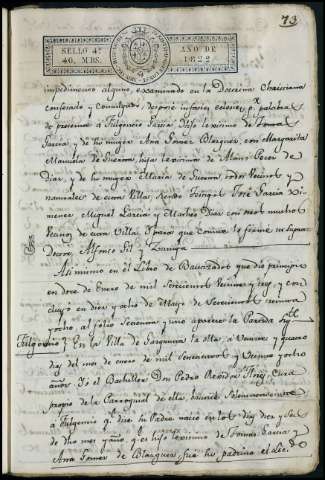 73
SELLO 4º
40. MRS.
AÑO DE
1822
impedimento alguno, examinado en la Doctrina Christiana
confesado y Comulgado, desposé infacie eclesiæ, pr. palabras
de presente a Fulgencio Garcia hijo lexitimo de Tomas
Garcia, y de su muger Ana Gomez Blazquez, con Margarita
hija lexitima de
Diaz, y de su muger Maria de todos Vecinos y
naturales de esta Villa, siendo testigos Jose Garcia Xi-
menez, Miguel Garcia y Matheo Diaz con otros muchos
Vecinos de esta Villa, y para que conste lo firmé
Doctor Alfonso Gil Zuñiga
Asimismo en el Libro de Bautizados que dio principio
en doce de Enero de mil Setecientos Veinte y seis, y con
cluyó en diez y ocho de Mayo de Setecientos
y ocho al folio y uno aparece la Partida sigte.
Fulgencio } En la Villa de a Veinte y quatro
dias del mes de enero de mil Setecientos y Veinte y ocho
años: Yo el Bachiller Don Pedro Cura
propio de la Parroquial de ella, bauticé Solemnemente
a Fulgencio qe. dixo su Padre nacio en los diez y seis
de dho mes y año, y es hijo lexitimo de Tomas Garcia y
Ana Gomez de Blazquez, fue su padrino el Lic.do